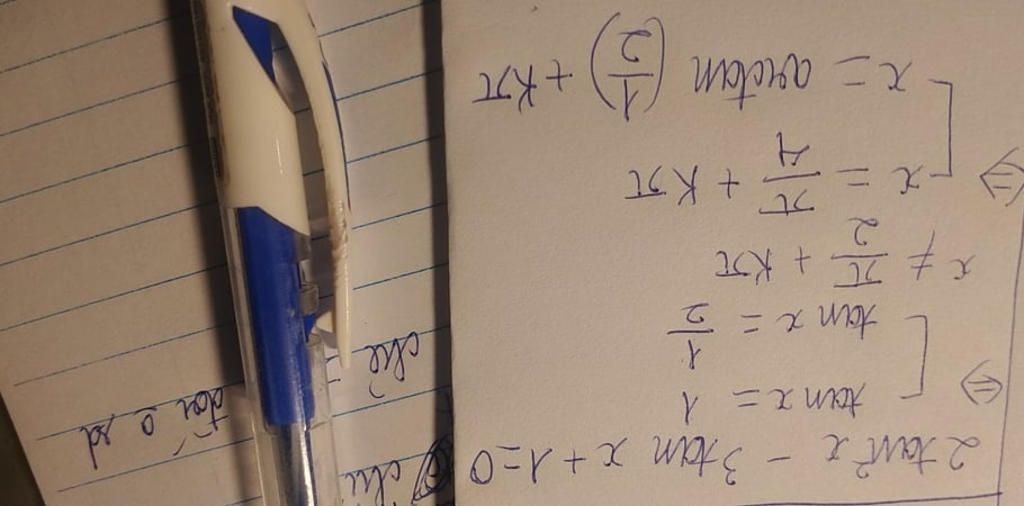 2tan²x - 3tan x + 1 = 0
⇔ [ tan x = 1
tan x = 1/2
x ≠ π/2 + kπ
⇔ [ x = π/4 + kπ
x = arctan (1/2) + kπ
chỉ